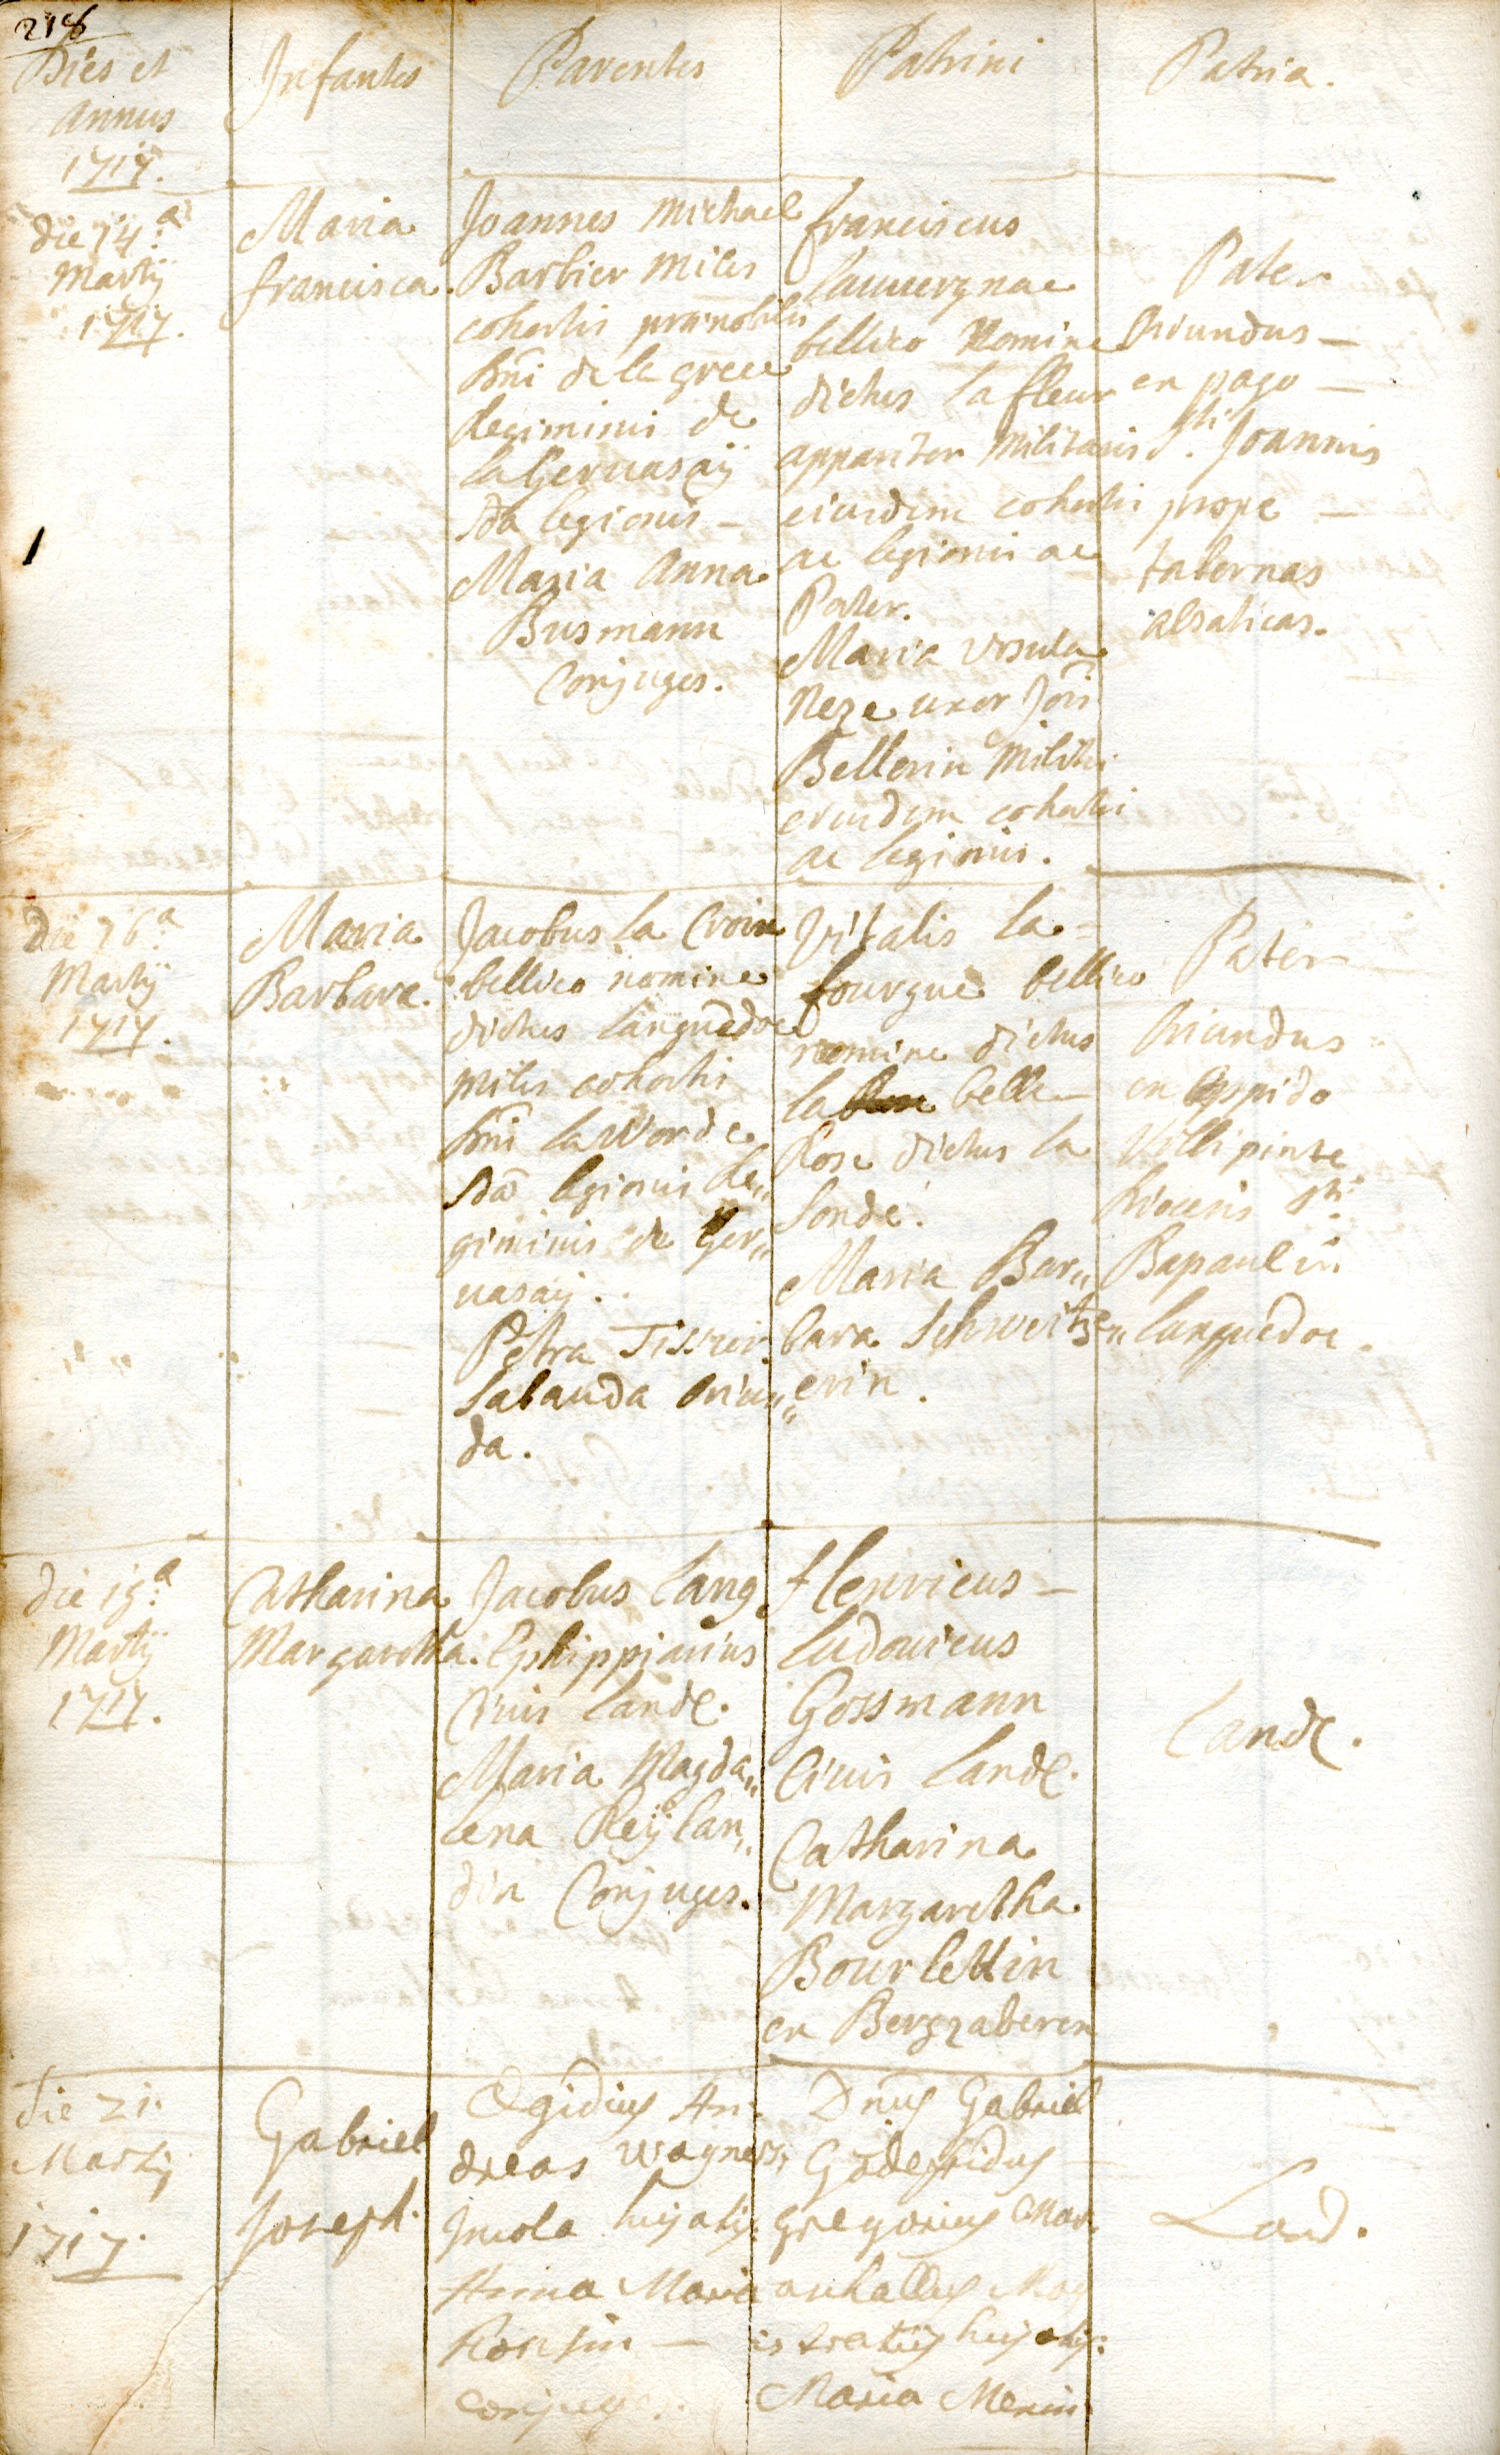 218
Dies et
Annus
1717.
Infantes
Parentes
Patrini
Patria.
die 14.a
Martij
1717.
Maria
francisca.
Joannes Michael
Barbier Miles
cohortis prænobilis
Dñi de la grece
Regiminis de
la Gervasaij
2da legionis -
Maria Anna
Busmann
Conjuges.
franciscus
Lauvergnac
bellico Nomine
dictus la fleur
apparitor Militaris
eiusdem cohortis
ac legionis ac
Pater.
Maria Ursula
Neze uxor Jōis
Bellerin Militis
eiusdem cohortis
ac legionis.
Pater
Oriundus -
ex pago -
Sti Joannis
prope -
tabernas
alsaticas.
die 16.a
Martij
1717.
Maria
Barbara.
Jacobus la Croix
bellico nomine
dictus Languedoc
Miles cohortis
Dñi la Worde
2da legionis Re„
giminis de Ger„
vasaij.
Petra Tissier
Sabauda Oriun„
da.
Vitalis la=
fourgue bellico
nomine dictus
la belle -
Rose dictus la
Sonde.
Maria Bar„
bara Schweitze„
erin.
Pater
Oriundus
ex Oppido
Villepinte
Diocesis Sti
Bapaul in
Languedoc.
die 19.a
Martij
1717.
Catharina
Margaretha.
Jacobus Lang
Ephippiarius
Civis Land.
Maria Magda„
lena Reÿlan„
din Conjuges.
Henricus -
Ludovicus
Gossmann
Civis Land.
Catharina
Margaretha
Bourlettin
ex Bergzaberen
Land.
die 21.
Martij
1717.
Gabriel
Joseph.
Ægidius An-
dreas Wagner,
Incola hujatis:
Anna Maria
-
conjuges.
Dnus Gabriel
Godefridus
Gregorius Mar-
Mag
istratus hujatis:
Maria
Land.